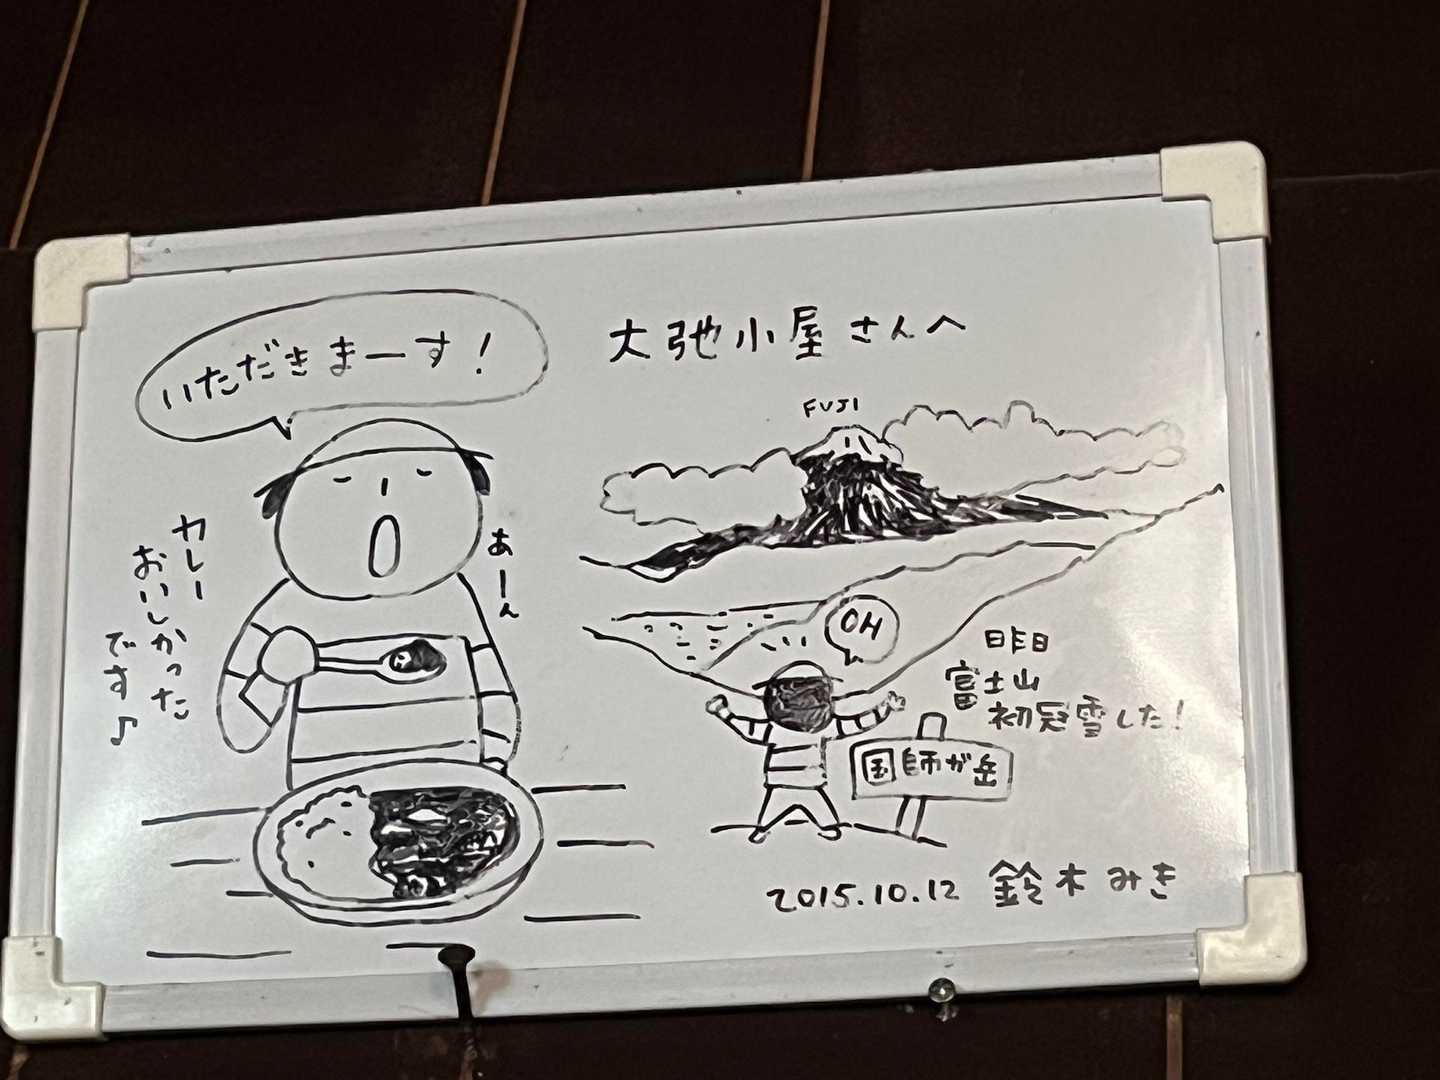 大弛小屋さんへ
いただきまーす!
あーん
カレー
おいしかった
です♪
FUJI
OH
昨日
富士山
初冠雪した!
国師が岳
2015.10.12 鈴木みき